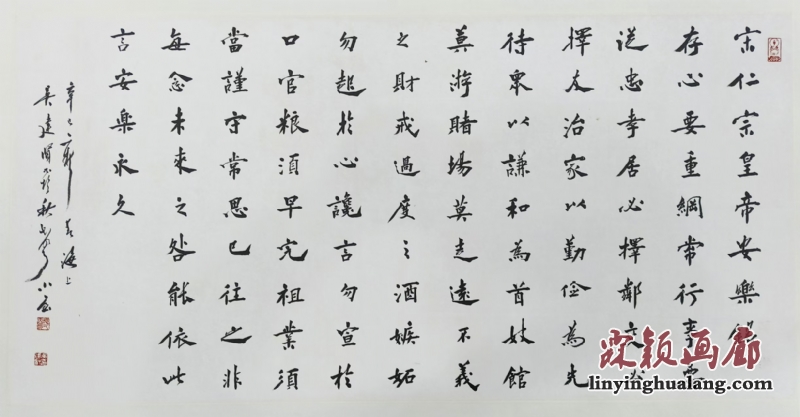 宋仁宗皇帝安樂銘
存心要重綱常行事要
從忠孝居必擇鄰交必
擇友治家以勤儉為先
待衆以謙和為首妓館
莫游賭場莫走遠不義
之財戒過度之酒嫉妬
勿起於心讒言勿宣於
口官糧須早完祖業須
當謹守常思已往之非
每念未來之咎能依此
言安樂永久
海上
吳建賢
霖颖画廊
linyinghualang.com